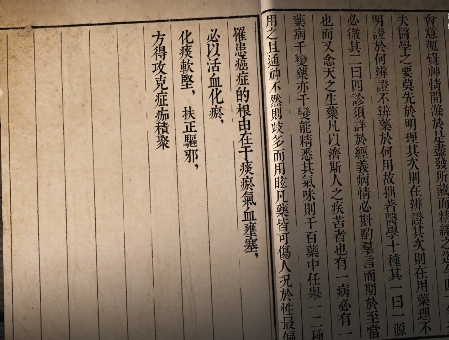 會意
夫醫學之要莫先於明理其次則在辨證其次則在用藥理不
明證於何辨證不辨藥於何用故拙著醫學十種其一曰一源
必徹其二曰四診須詳於經義病情必斟酌羣言而期於至當
也而又念天之生藥凡以濟斯人之疾苦者也有一病必有一
藥病千變藥亦千變能精悉其氣味則千百藥中任舉一二種
用之且通神不然則歧多而用眩凡藥皆可傷人況於性最偏
罹患癌症的根由在于痰瘀氣血壅塞,
必以活血化瘀,
化痰軟堅,扶正驅邪,
方得攻克症痂積聚